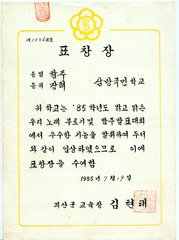 표창장
종별 합주
등위 장려
삼방국민학교
위 학교는 '85 학년도 맑고 밝은
우리 노래 부르기 및 합주 발표대회
에서 우수한 기능을 발휘하여 두서
와 같이 입상하였으므로 이에
표창장을 수여함
1985년 7월 9일
괴산군 교육장 김현태